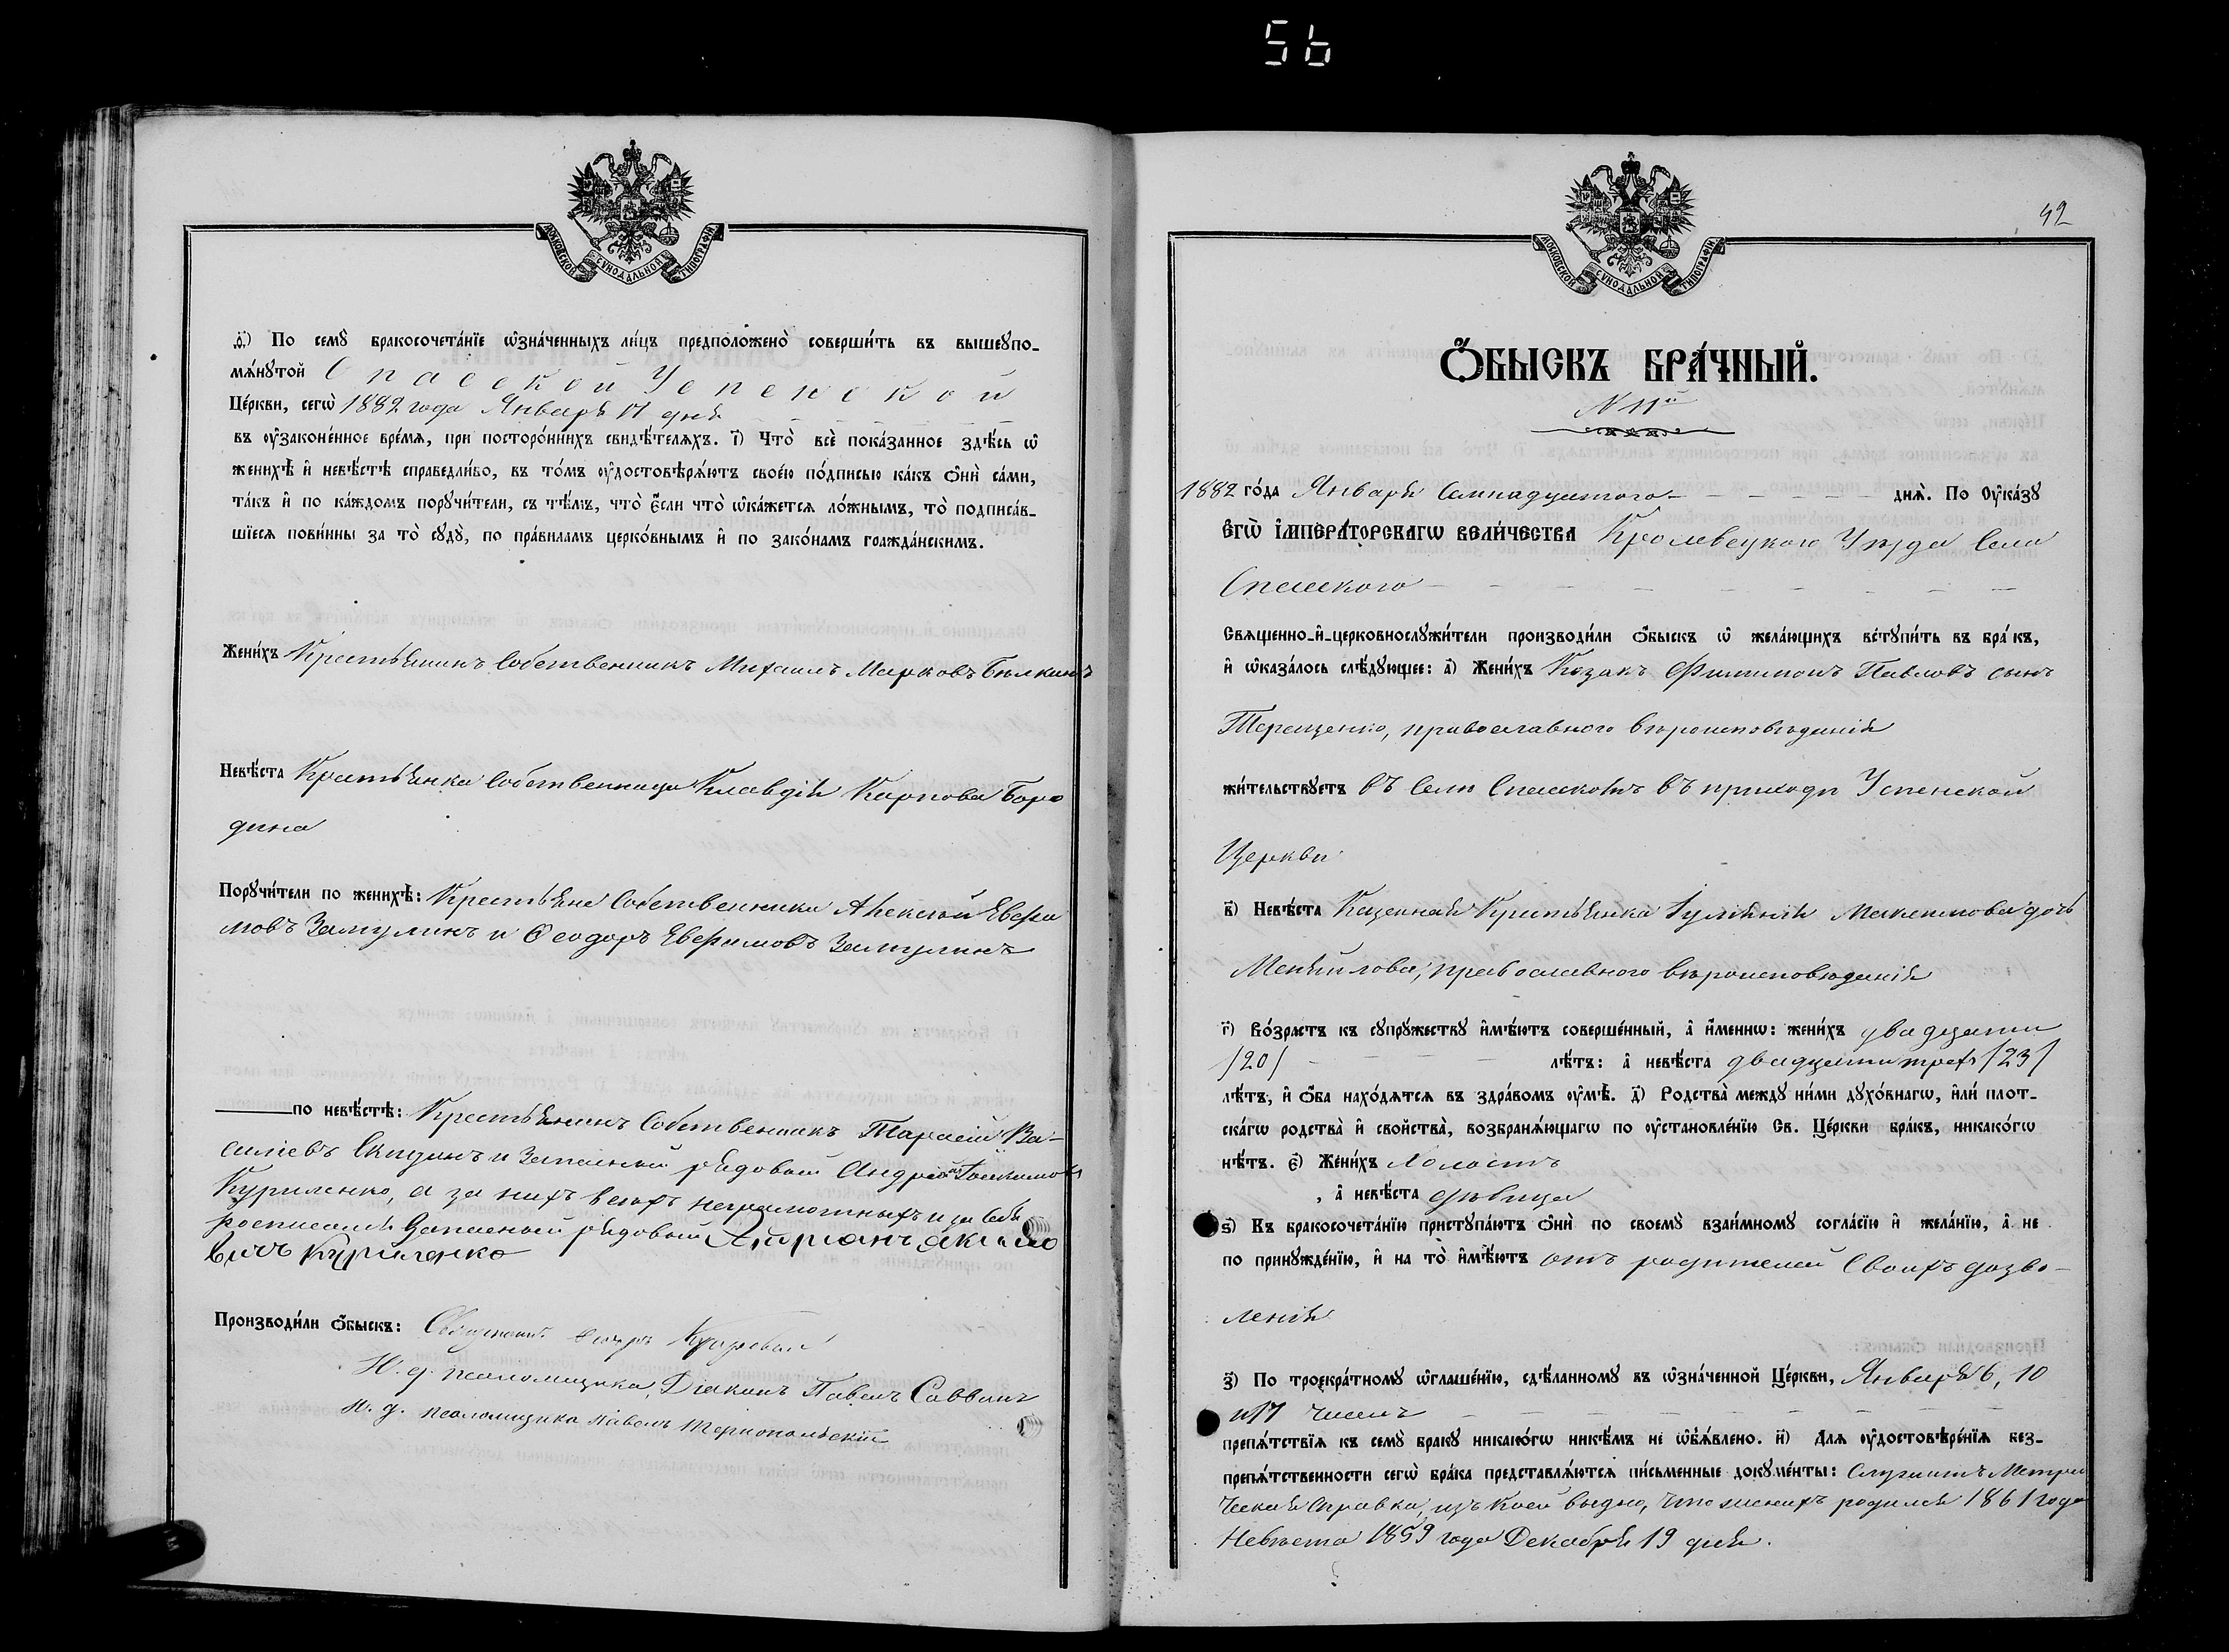 56
МОСКОВСКОЙ СѴНОДАЛЬНОЙ ТИПОГРАФІИ
ѳ҃) По семꙋ̀ бракосочета́нїе ѡ҆зна́ченныхъ ли́цъ предположено̀ соверши́ть въ вышеꙋпо-
мѧ́нꙋтой Спасской Успенской
Це́ркви, сегѡ̀ 1882 года Января 17 дня
въ ᲂу҆законе́нное вре́мѧ, при посторо́ннихъ свидѣ́телѧхъ. і҃) Что̀ всѐ пока́занное здѣ́сь ѡ҆
женихѣ̀ и҆ невѣ́стѣ справедли́во, въ то́мъ ᲂу҆достовѣрѧ́ютъ свое́ю по́дписью ка́къ ѻ҆нѝ са́ми,
та́къ и҆ по ка́ждомъ порꙋчи́тели, съ тѣ́мъ, что̀ є҆́сли что̀ ѡ҆ка́жетсѧ ло́жнымъ, то̀ подписа́в-
шїесѧ пови́нны за то̀ сꙋдꙋ̀, по пра́виламъ церко́внымъ и҆ по зако́намъ гражда́нскимъ.
Жени́хъ Крестьянинъ Собственникъ Михаилъ Марковъ Бѣлкинъ
Невѣ́ста Крестьянка Собственница Клавдія Карпова Боро
дина
Порꙋчи́тели по женихѣ̀: Крестьяне Собственники Алексѣй Евфи
мовъ Замулинъ и Ѳеодоръ Евфимовъ Замулинъ
по невѣ́стѣ: Крестьянинъ Собственникъ Тарасій Ва-
силіевъ и Запасный рядовой Андрей Іоакимовъ
Куриленко, а за нихъ всѣхъ неграмотныхъ и за себя
росписался Запасный рядовой
вичъ Куриленко
Производи́ли ѻ҆́быскъ: Священникъ
И. д. псаломщика, Діаконъ Павелъ Саввинъ
И. д. псаломщика Павелъ Тернопольскій
42
МОСКОВСКОЙ СѴНОДАЛЬНОЙ ТИПОГРАФІИ
Ѻ҆́БЫСКЪ БРА́ЧНЫЙ.
N 11й
1882 го́да Января Семнадцатого днѧ̀. По Оу҆ка́зꙋ
Є҆ГѠ̀ І҆МПЕРА́ТОРСКАГѠ ВЕЛИ́ЧЕСТВА Кролевецкого Уѣзда Села
Спасского
Свѧщенно-и҆-церковнослꙋжи́тели производи́ли ѻ҆́быскъ ѡ҆ жела́ющихъ встꙋпи́ть въ бра́къ,
и҆ ѡ҆каза́лось слѣ́дꙋющее: а҃) Жени́хъ Козакъ Филимонъ Павловъ сынъ
Терещенко, православного вѣроисповѣданія
жи́тельствꙋетъ въ Селѣ Спасскомъ въ приходѣ Успенской
Церкви
в҃) Невѣ́ста Казенная Крестьянка Іуліянія Максимова дочь
Меняйлова, православного вѣроисповѣданія
г҃) Во́зрастъ къ сꙋпрꙋ́жествꙋ и҆мѣ́ютъ соверше́нный, а҆ и҆́менно: жени́хъ двадцати
/20/ лѣ́тъ: а҆ невѣ́ста двадцати трехъ /23/
лѣ́тъ, и҆ ѻ҆́ба нахо́дѧтсѧ въ здра́вомъ ᲂу҆мѣ̀. д҃) Родства̀ междꙋ ни́ми дꙋхо́внагѡ, и҆лѝ плот-
ска́гѡ родства̀ и҆ сво́йства̀, возбранѧ́ющагѡ по ᲂу҆становле́нїю Св. Це́ркви бра́къ, никако́гѡ
нѣ́тъ. є҃) Жени́хъ Холостъ
, а҆ невѣ́ста дѣвица
ѕ҃) Къ бракосочета́нїю пристꙋпа́ютъ ѻ҆нѝ по своемꙋ̀ взаи́мномꙋ согла́сїю и҆ жела́нїю, а҆ не
по принꙋжде́нїю, и҆ на то̀ и҆мѣ́ютъ отъ родителей Своихъ дозво-
ленія
з҃) По троекра́тномꙋ ѡ҆глаше́нїю, сдѣ́ланномꙋ въ ѡ҆зна́ченной Це́ркви, Января 6, 10
и 17 чиселъ
препѧ́тствїѧ къ семꙋ̀ бракꙋ никако́гѡ никѣ́мъ не ѡ҆б̾ѧ́влено. и҃) Длѧ ᲂу҆достовѣре́нїѧ без-
препѧ́тственности сегѡ̀ бра́ка представлѧ́ютсѧ пи́сьменные докꙋме́нты: Служитъ Метри
ческая Справка, изъ коей видно, что женихъ родился 1861 года
Невѣста 1859 года Декабря 19 дня.